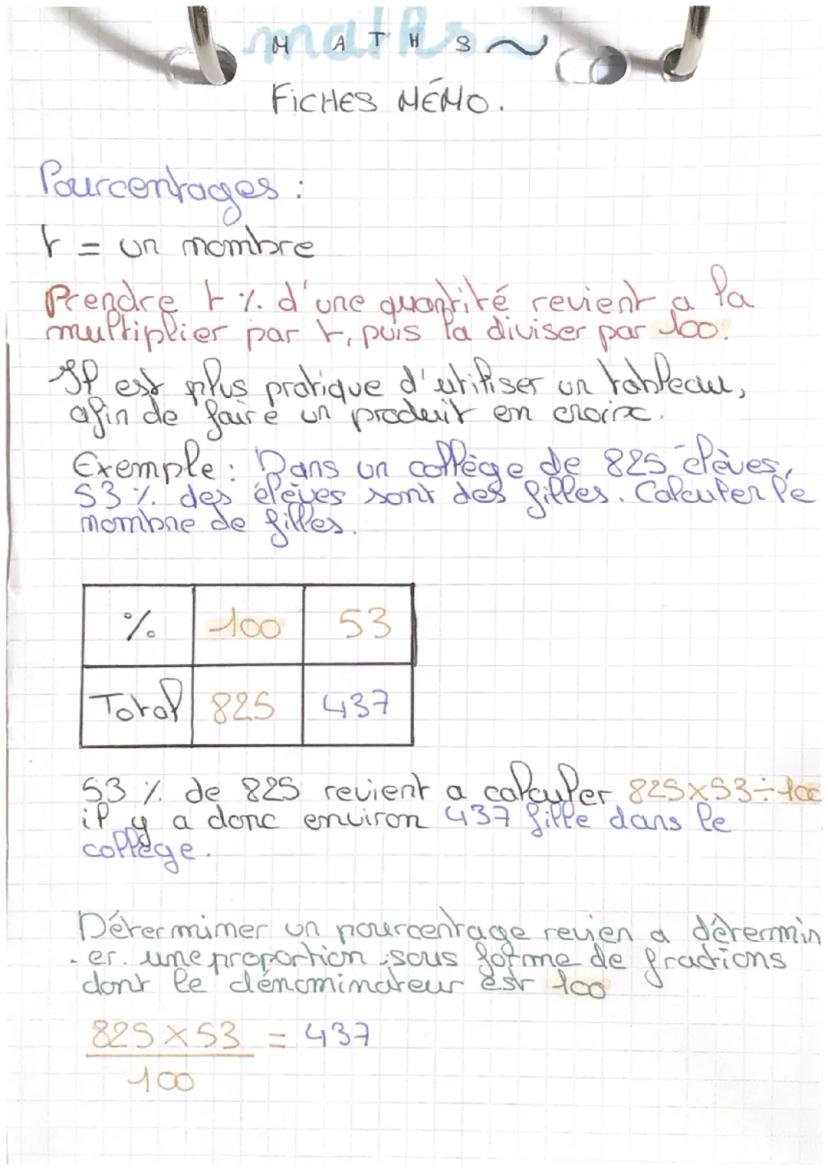 maths
MATHS ~
FICHES MÉMO.
Pourcentages :
t = un nombre
Prendre t % d'une quantité revient a la
multiplier par t, puis la diviser par 100.
Il est plus pratique d'utiliser un tableau,
afin de faire un produit en croix.
Exemple : Dans un collège de 825 élèves,
53 % des élèves sont des filles. Calculer le
nombre de filles.
% 100 53
Total 825 437
53 % de 825 revient a calculer 825×53÷100
il y a donc environ 437 fille dans le
collège.
Déterminer un pourcentage revien a détermin
-er une proportion sous forme de fractions
dont le dénominateur est 100
825 × 53 = 437
100